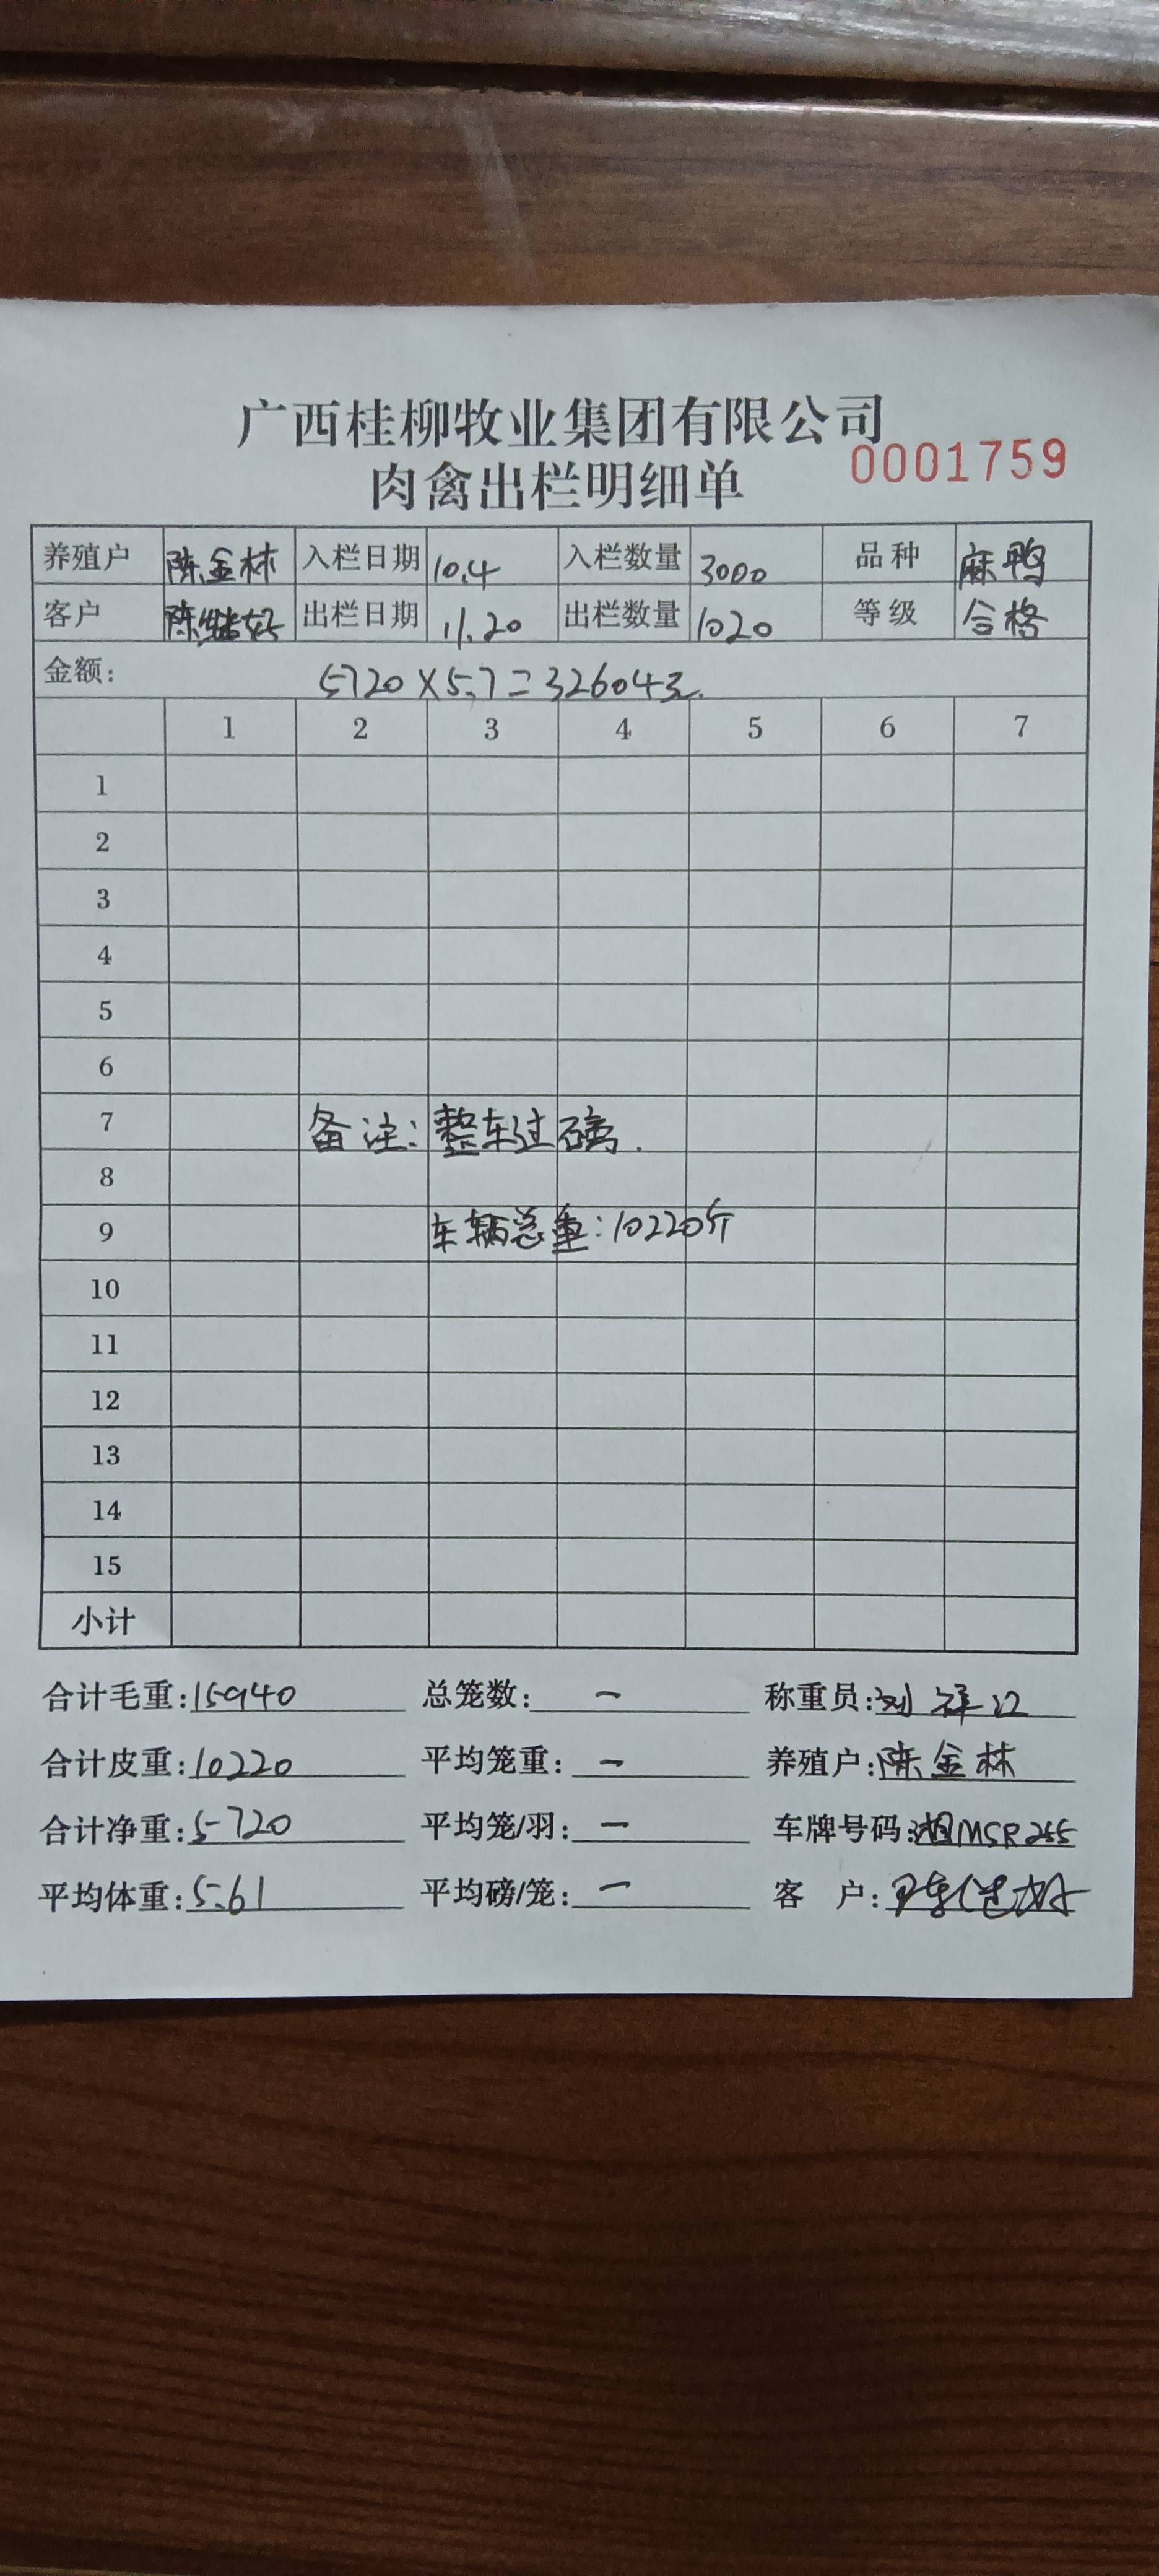 广西桂柳牧业集团有限公司
肉禽出栏明细单 0001759
养殖户 陈金林 入栏日期 10.4 入栏数量 3000 品种 麻鸭
客户 陈继好 出栏日期 11.20 出栏数量 1020 等级 合格
金额: 5720×5.7=32604元.
1 2 3 4 5 6 7
1
2
3
4
5
6
7 备注:整车过磅.
8
9 车辆总重:10220斤
10
11
12
13
14
15
小计
合计毛重:15940 总笼数:一 称重员:刘祥江
合计皮重:10220 平均笼重:一 养殖户:陈金林
合计净重:5720 平均笼/羽:一 车牌号码:湘MSR255
平均体重:5.61 平均磅/笼:一 客 户: